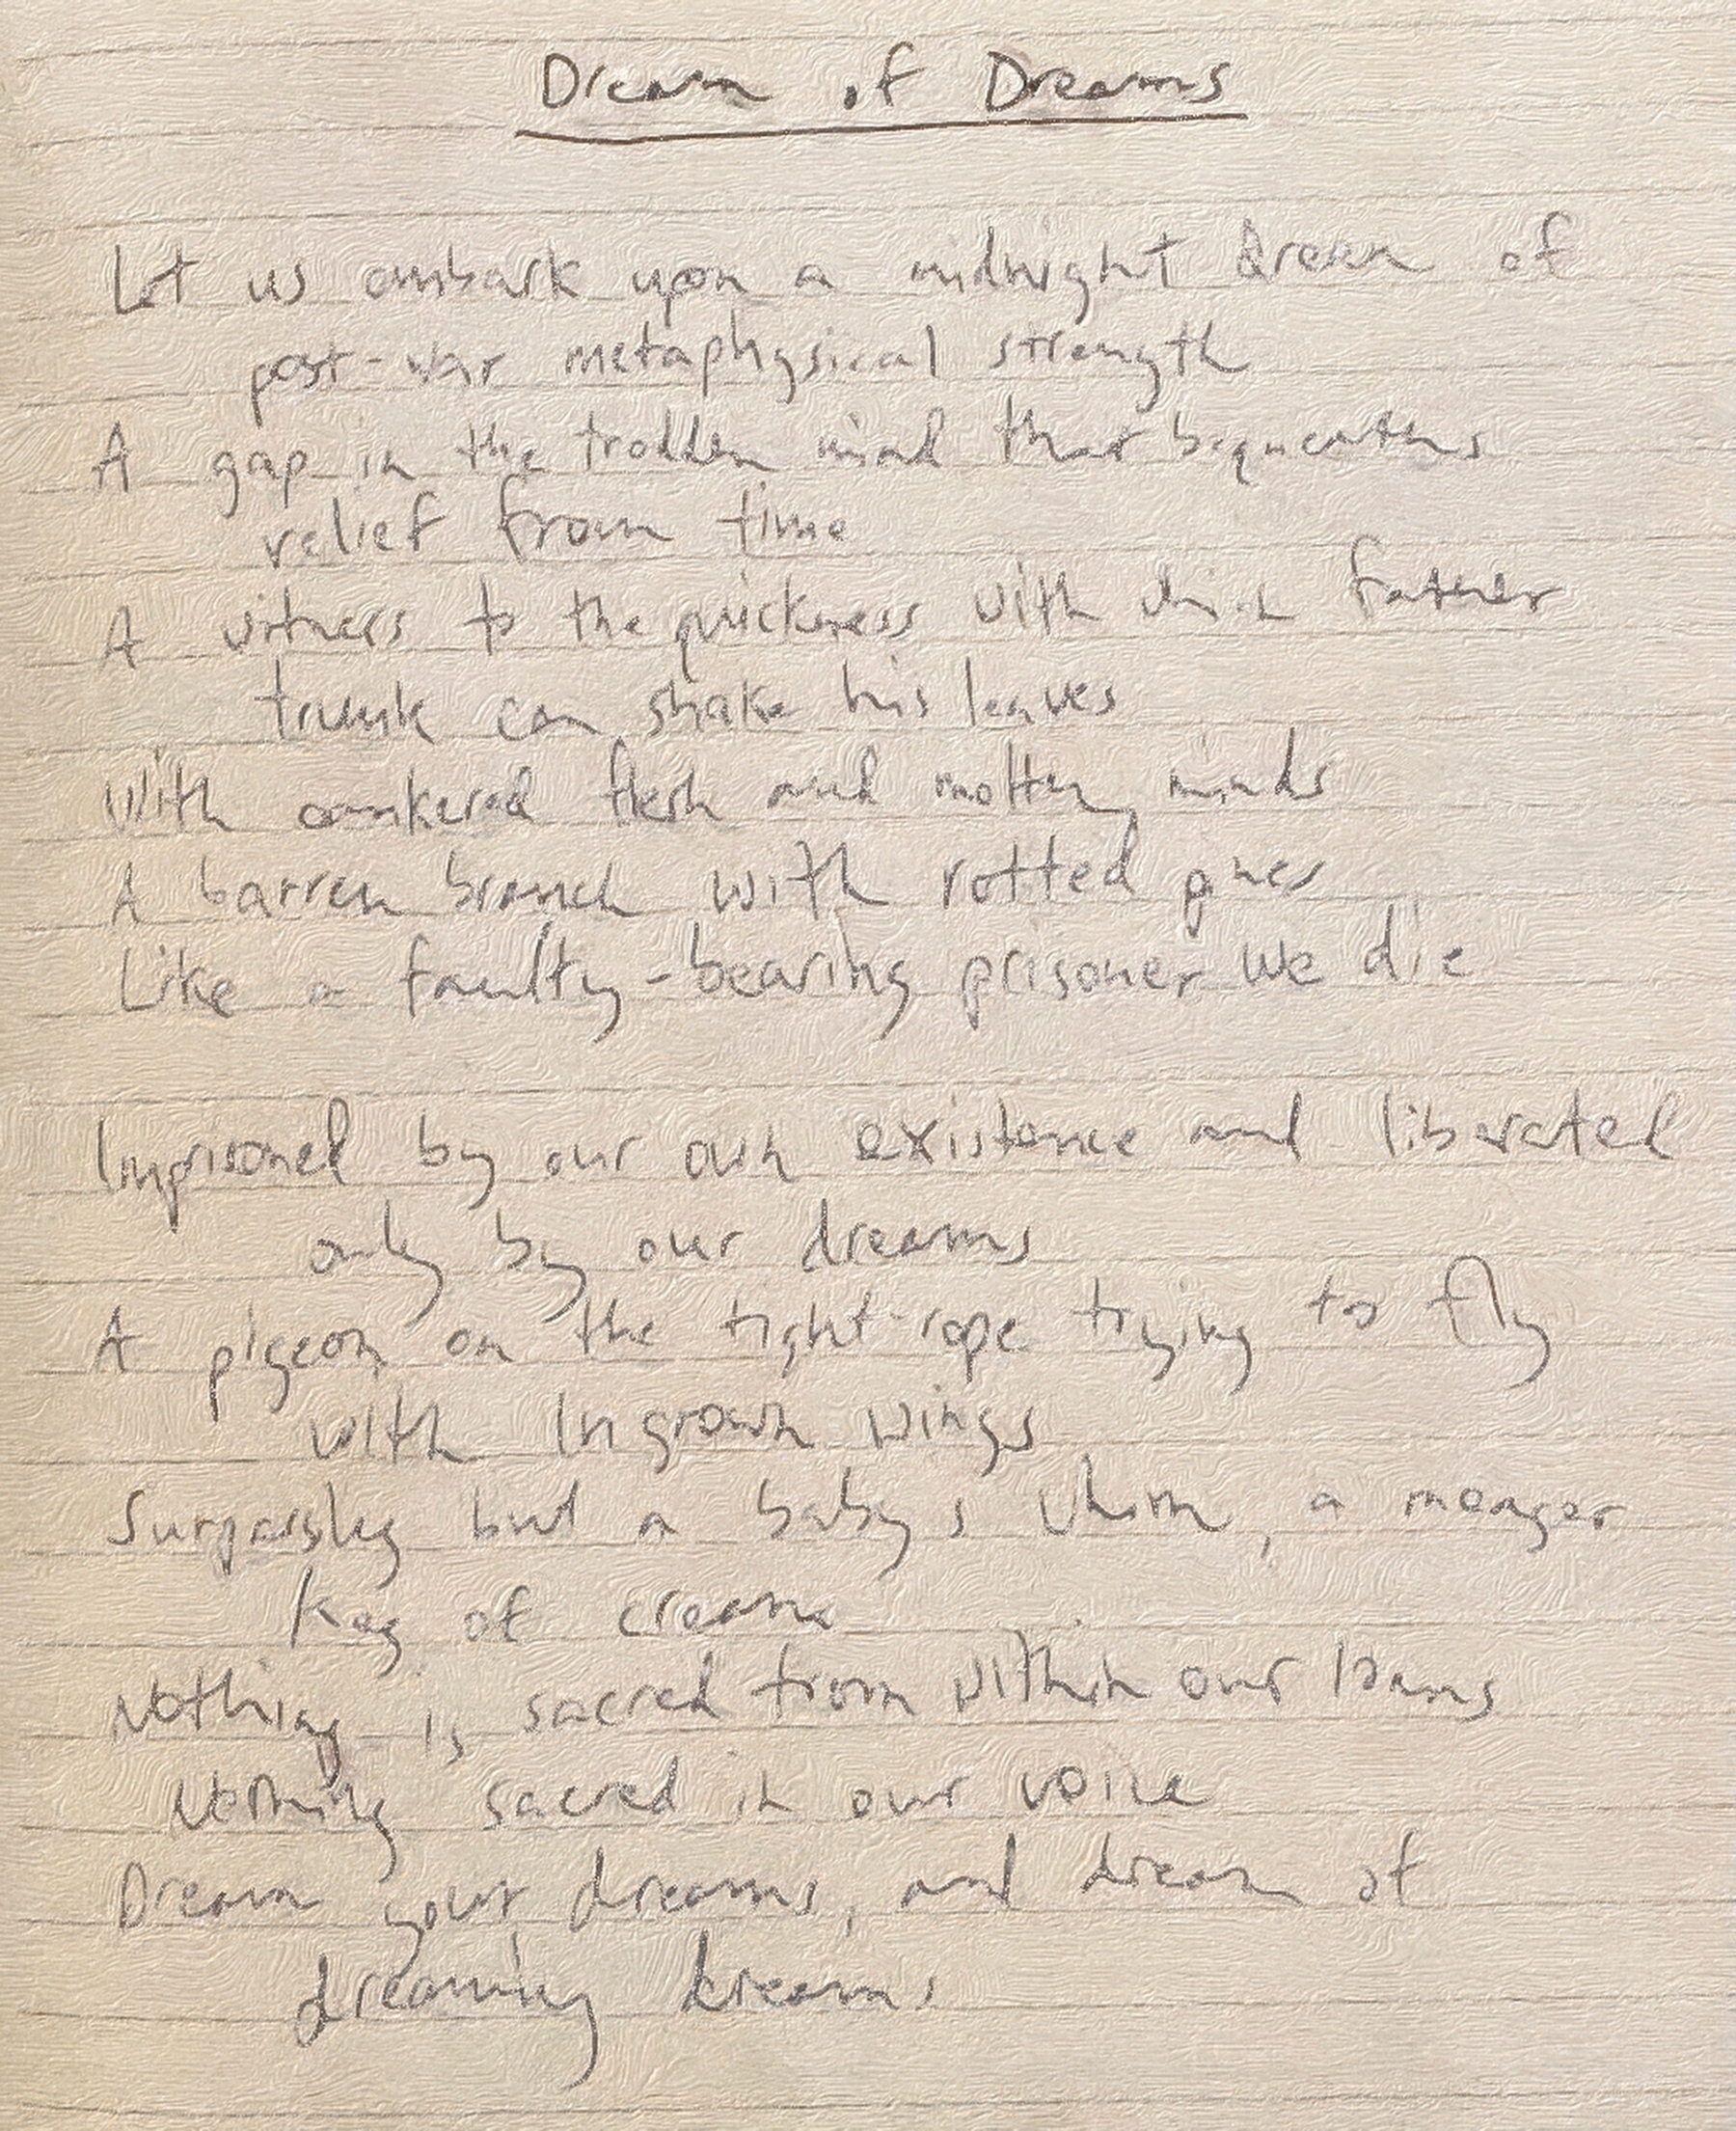 Dream of Dreams
Let us embark upon a midnight dream of
post-war metaphysical strength
A gap in the trodden mind that bequeaths
relief from time
A witness to the quickness with which father
trunk can shake his leaves
With cankered flesh and minds
A barren branch with rotted
Like a faulty-bearing prisoner we die
Imprisoned by our own existence and liberated
only by our dreams
A pigeon on the tight-rope trying to fly
with ingrown wings
but a baby's whim, a meager
keg of cream
Nothing is sacred from within our
Nothing sacred in our voice
Dream your dreams, and dream of
dreaming dreams